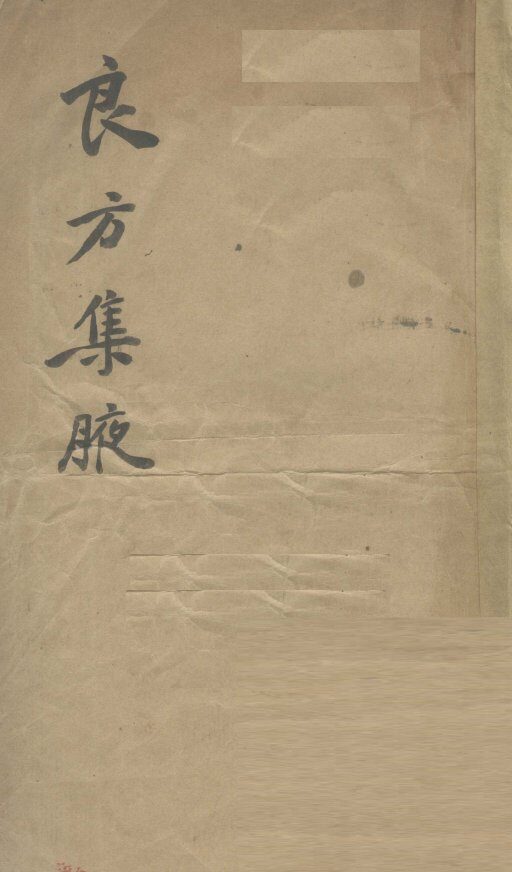 良方集腋